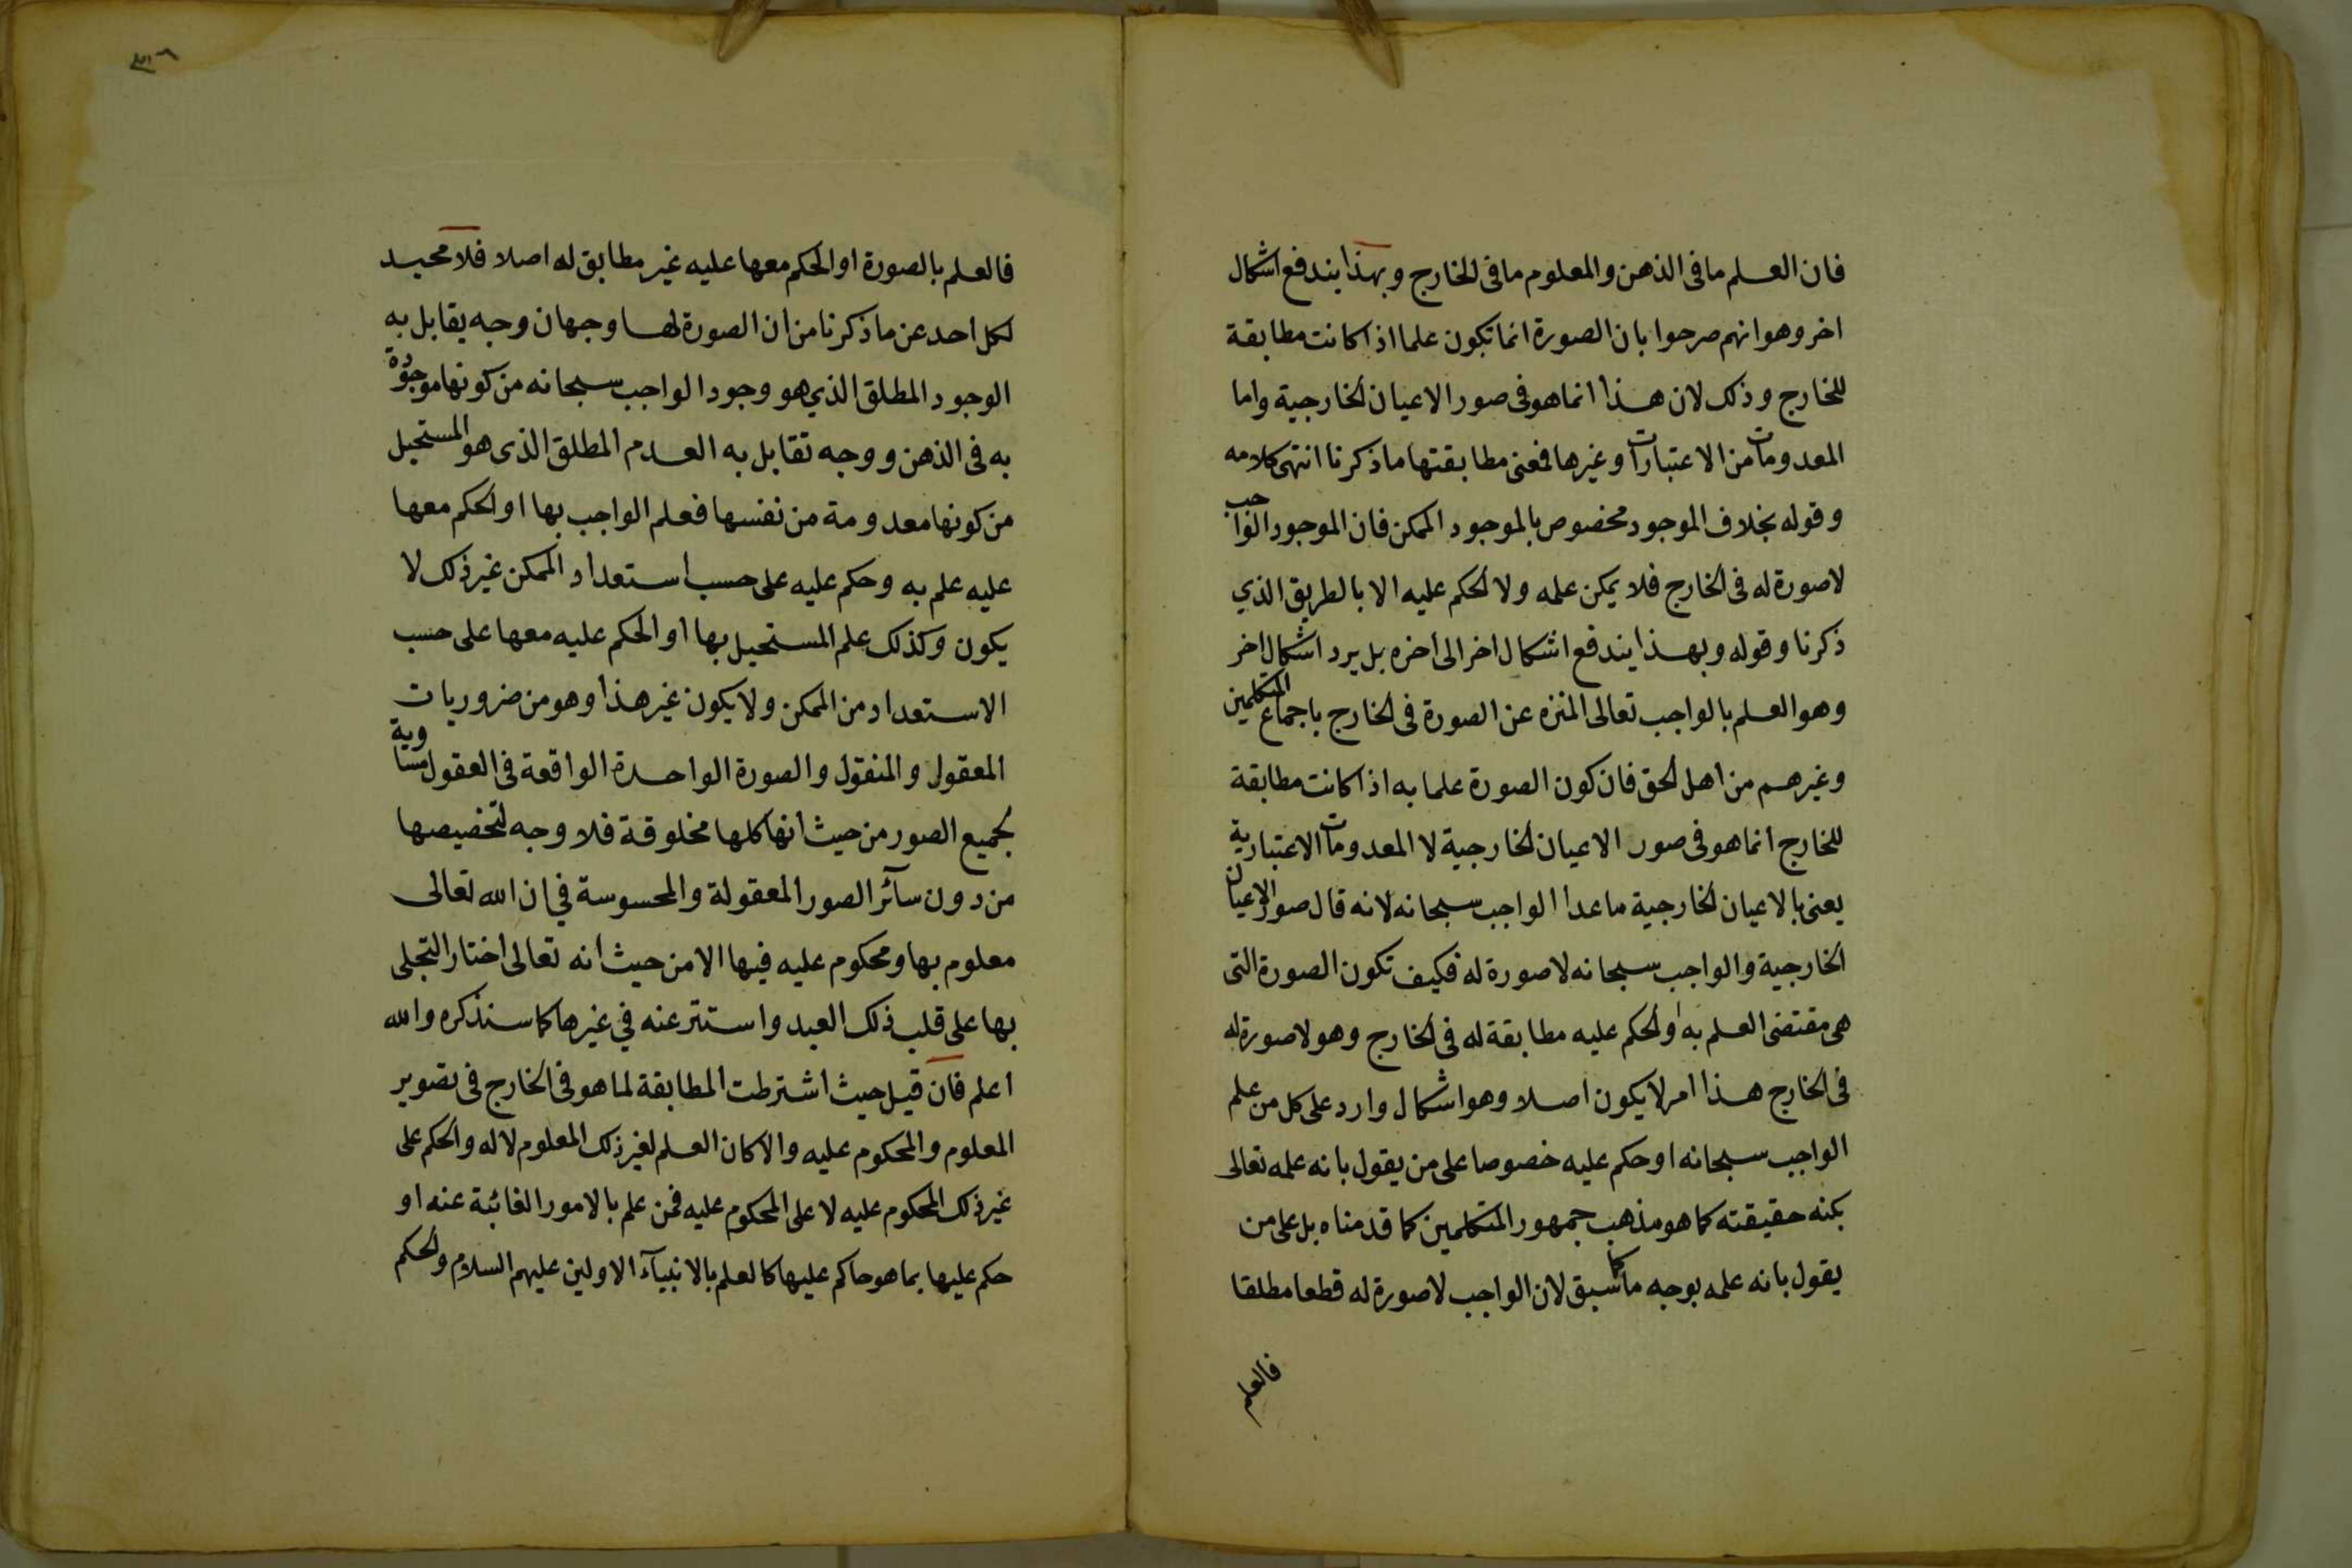 فان العلم ما فى الذهن والمعلوم ما فى الخارج وبهذا يندفع اشكال
اخر وهو انهم صرحوا بان الصورة انما تكون علما اذا كانت مطابقة
للخارج وذلك لان هذا انما هو فى صور الاعيان الخارجية واما
المعدومات من الاعتبارات وغيرها فمعنى مطابقتها ما ذكرنا انتهى كلامه
وقوله بخلاف الموجود مخصوص بالموجود الممكن فان الموجود الواجب
لا صورة له فى الخارج فلا يمكن علمه ولا الحكم عليه الا بالطريق الذي
ذكرنا وقوله وبهذا يندفع اشكال اخر الى اخره بل يرد اشكال اخر
وهو العلم بالواجب تعالى المنزه عن الصورة فى الخارج باجماع المتكلمين
وغيرهم من اهل الحق فان كون الصورة علما به اذا كانت مطابقة
للخارج انما هو فى صور الاعيان الخارجية لا المعدومات الاعتبارية
يعنى بالاعيان الخارجية ما عدا الواجب سبحانه لانه قال صور الاعيان
الخارجية والواجب سبحانه لا صورة له فكيف تكون الصورة التى
هى مقتضى العلم به او الحكم عليه مطابقة له فى الخارج وهو لا صورة له
فى الخارج هذا امر لا يكون اصلا وهو اشكال وارد على كل من علم
الواجب سبحانه او حكم عليه خصوصا على من يقول بانه علمه تعالى
بكنه حقيقته كما هو مذهب جمهور المتكلمين كما قدمناه بل على من
يقول بانه علمه بوجه ما كما سبق لان الواجب لا صورة له قطعا مطلقا
فالعلم
فالعلم بالصورة او الحكم معها عليه غير مطابق له اصلا فلا محيد
لكل احد عن ما ذكرنا من ان الصورة لها وجهان وجه يقابل به
الوجود المطلق الذي هو وجود الواجب سبحانه من كونها موجودة
به فى الذهن ووجه تقابل به العدم المطلق الذى هو المستحيل
من كونها معدومة من نفسها فعلم الواجب بها او الحكم معها
عليه علم به وحكم عليه على حسب استعداد الممكن غير ذلك لا
يكون وكذلك علم المستحيل بها او الحكم عليه معها على حسب
الاستعداد من الممكن ولا يكون غير هذا وهو من ضروريات
المعقول والمنقول والصورة الواحدة الواقعة فى العقول مساوية
لجميع الصور من حيث انها كلها مخلوقة فلا وجه لتخصيصها
من دون سآئر الصور المعقولة والمحسوسة في ان الله تعالى
معلوم بها ومحكوم عليه فيها الا من حيث انه تعالى اختار التجلى
بها على قلب ذلك العبد واستتر عنه في غيرها كما سنذكره والله
اعلم فان قيل حيث اشترطت المطابقة لما هو فى الخارج فى تصوير
المعلوم والمحكوم عليه والا كان العلم لغير ذلك المعلوم لا له والحكم على
غير ذلك المحكوم عليه لا على المحكوم عليه فمن علم بالامور الغائبة عنه او
حكم عليها بما هو حاكم عليها كالعلم بالانبيآء الاولين عليهم السلام والحكم